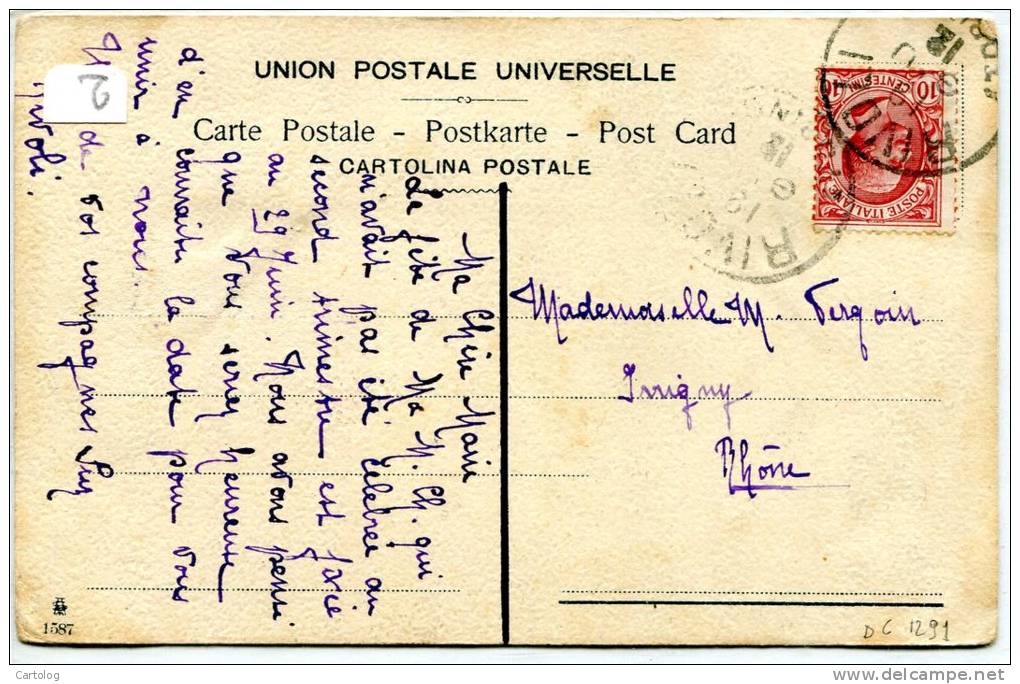 UNION POSTALE UNIVERSELLE
Carte Postale - Postkarte - Post Card
CARTOLINA POSTALE
Ma Chère Marie
La fête de Ma M. Ch. qui
n'avait pas été célébrée au
second trimestre est fixée
au 29 Juin. Nous avons pensé
que vous seriez heureuse
d'en connaître la date pour vous
unir à nous.
de vos compagnes
Rivoli.
2
10
CENTESIMI
POSTE ITALIANE
RIVOLI
TORINO
12
Mademoiselle M. Verguin
Irigny
Rhône
1587
DC 1291
Cartolog
www.delcampe.net